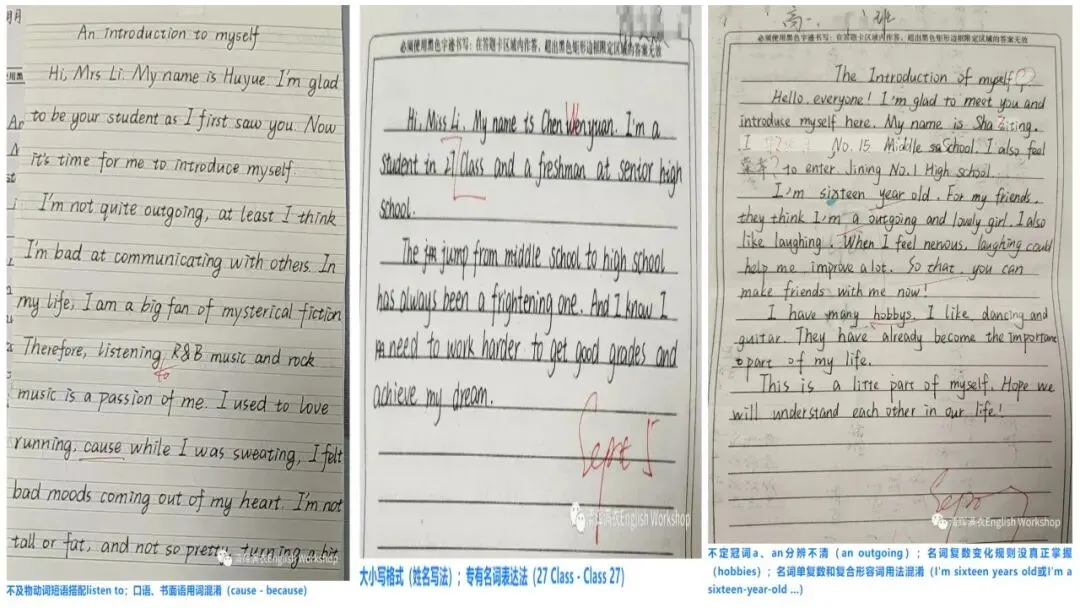 An introduction to myself
Hi, Mrs Li. My name is Huyue. I'm glad
to be your student as I first saw you. Now
it's time for me to introduce myself.
I'm not quite outgoing, at least I think
I'm bad at communicating with others. In
my life, I am a big fan of mysterical fiction
Therefore, listening R&B music and rock
to
music is a passion of me. I used to love
running, cause while I was sweating, I felt
bad moods coming out of my heart. I'm not
tall or fat, and not so pretty, turning a bit
清晖满衣English Workshop
不及物动词短语搭配listen to；口语、书面语用词混淆（cause - because）
必须使用黑色字迹书写：在答题卡区域内作答，超出黑色矩形边框限定区域的答案无效
Hi, Miss Li. My name is Chen Wenyuan. I'm a
student in 27 Class and a freshman at senior high
school.
The jump from middle school to high school
has always been a frightening one. And I know I
need to work harder to get good grades and
achieve my dream.
Sept 5
清晖满衣English Workshop
大小写格式（姓名写法）；专有名词表达法（27 Class - Class 27）
高一 班
必须使用黑色字迹书写：在答题卡区域内作答，超出黑色矩形边框限定区域的答案无效
The Introduction of myself
Hello, everyone! I'm glad to meet you and
introduce myself here. My name is Sha iting.
I No. 15 Middle School. I also feel
荣幸 to enter Jining No.1 High school.
I'm sixteen year old. For my friends,
they think I'm a outgoing and lovely girl. I also
like laughing. When I feel nervous, laughing could
help me improve a lot. So that, you can
make friends with me now!
I have many hobbys. I like dancing and
guitar. They have already become the importance
part of my life.
This is a litte part of myself. Hope we
will understand each other in our life!
清晖满衣English Workshop
不定冠词a、an分辨不清（an outgoing）；名词复数变化规则没真正掌握
（hobbies）；名词单复数和复合形容词用法混淆（I'm sixteen years old或I'm a
sixteen-year-old ...）